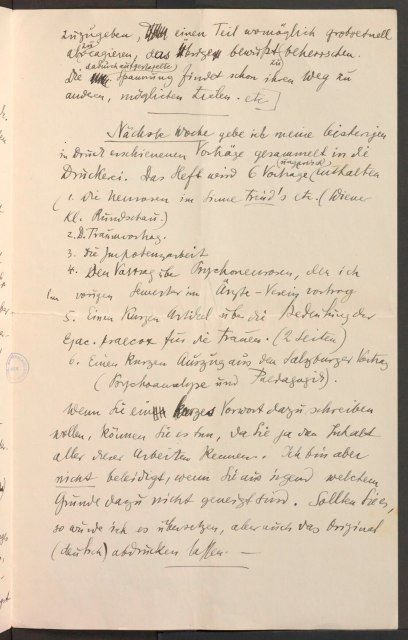 zuzugeben, einen Teil womöglich grobsexuell
abzureagieren, das übrige bewußt zu beherrschen.
die (dadurch aufgespeicherte) Spannung findet schon ihren Weg zu
anderen, möglichen Zielen. etc]
Nächste Woche gebe ich meine bisherigen
in Druck erschienenen Vorträge gesammelt in die
Druckerei. Das Heft wird 6 Vorträge (ungarisch) enthalten
(1. Die Neurosen im Sinne Freud's etc. (Wiener
Kl. Rundschau)
2. D. Traumvortrag.
3. die Impotenzarbeit
4. Den Vortrag über Psychoneurosen, den ich
im vorigen Semester im Ärzte-Verein vortrug
5. Einen kurzen Artikel über die Bedeutung der
Ejac. praecox für die Frauen. (2 Seiten)
6. Einen kurzen Auszug aus dem Salzburger Vortrag
(Psychoanalyse und Paedagogik).
Wenn Sie ein kurzes Vorwort dazu schreiben
wollen, können Sie es tun, da Sie ja den Inhalt
aller dieser Arbeiten kennen. Ich bin aber
nicht beleidigt, wenn Sie aus irgend welchem
Grunde dazu nicht geneigt sind. Sollten Sie es,
so würde ich es übersetzen, aber auch das Original
(deutsch) abdrucken lassen. —